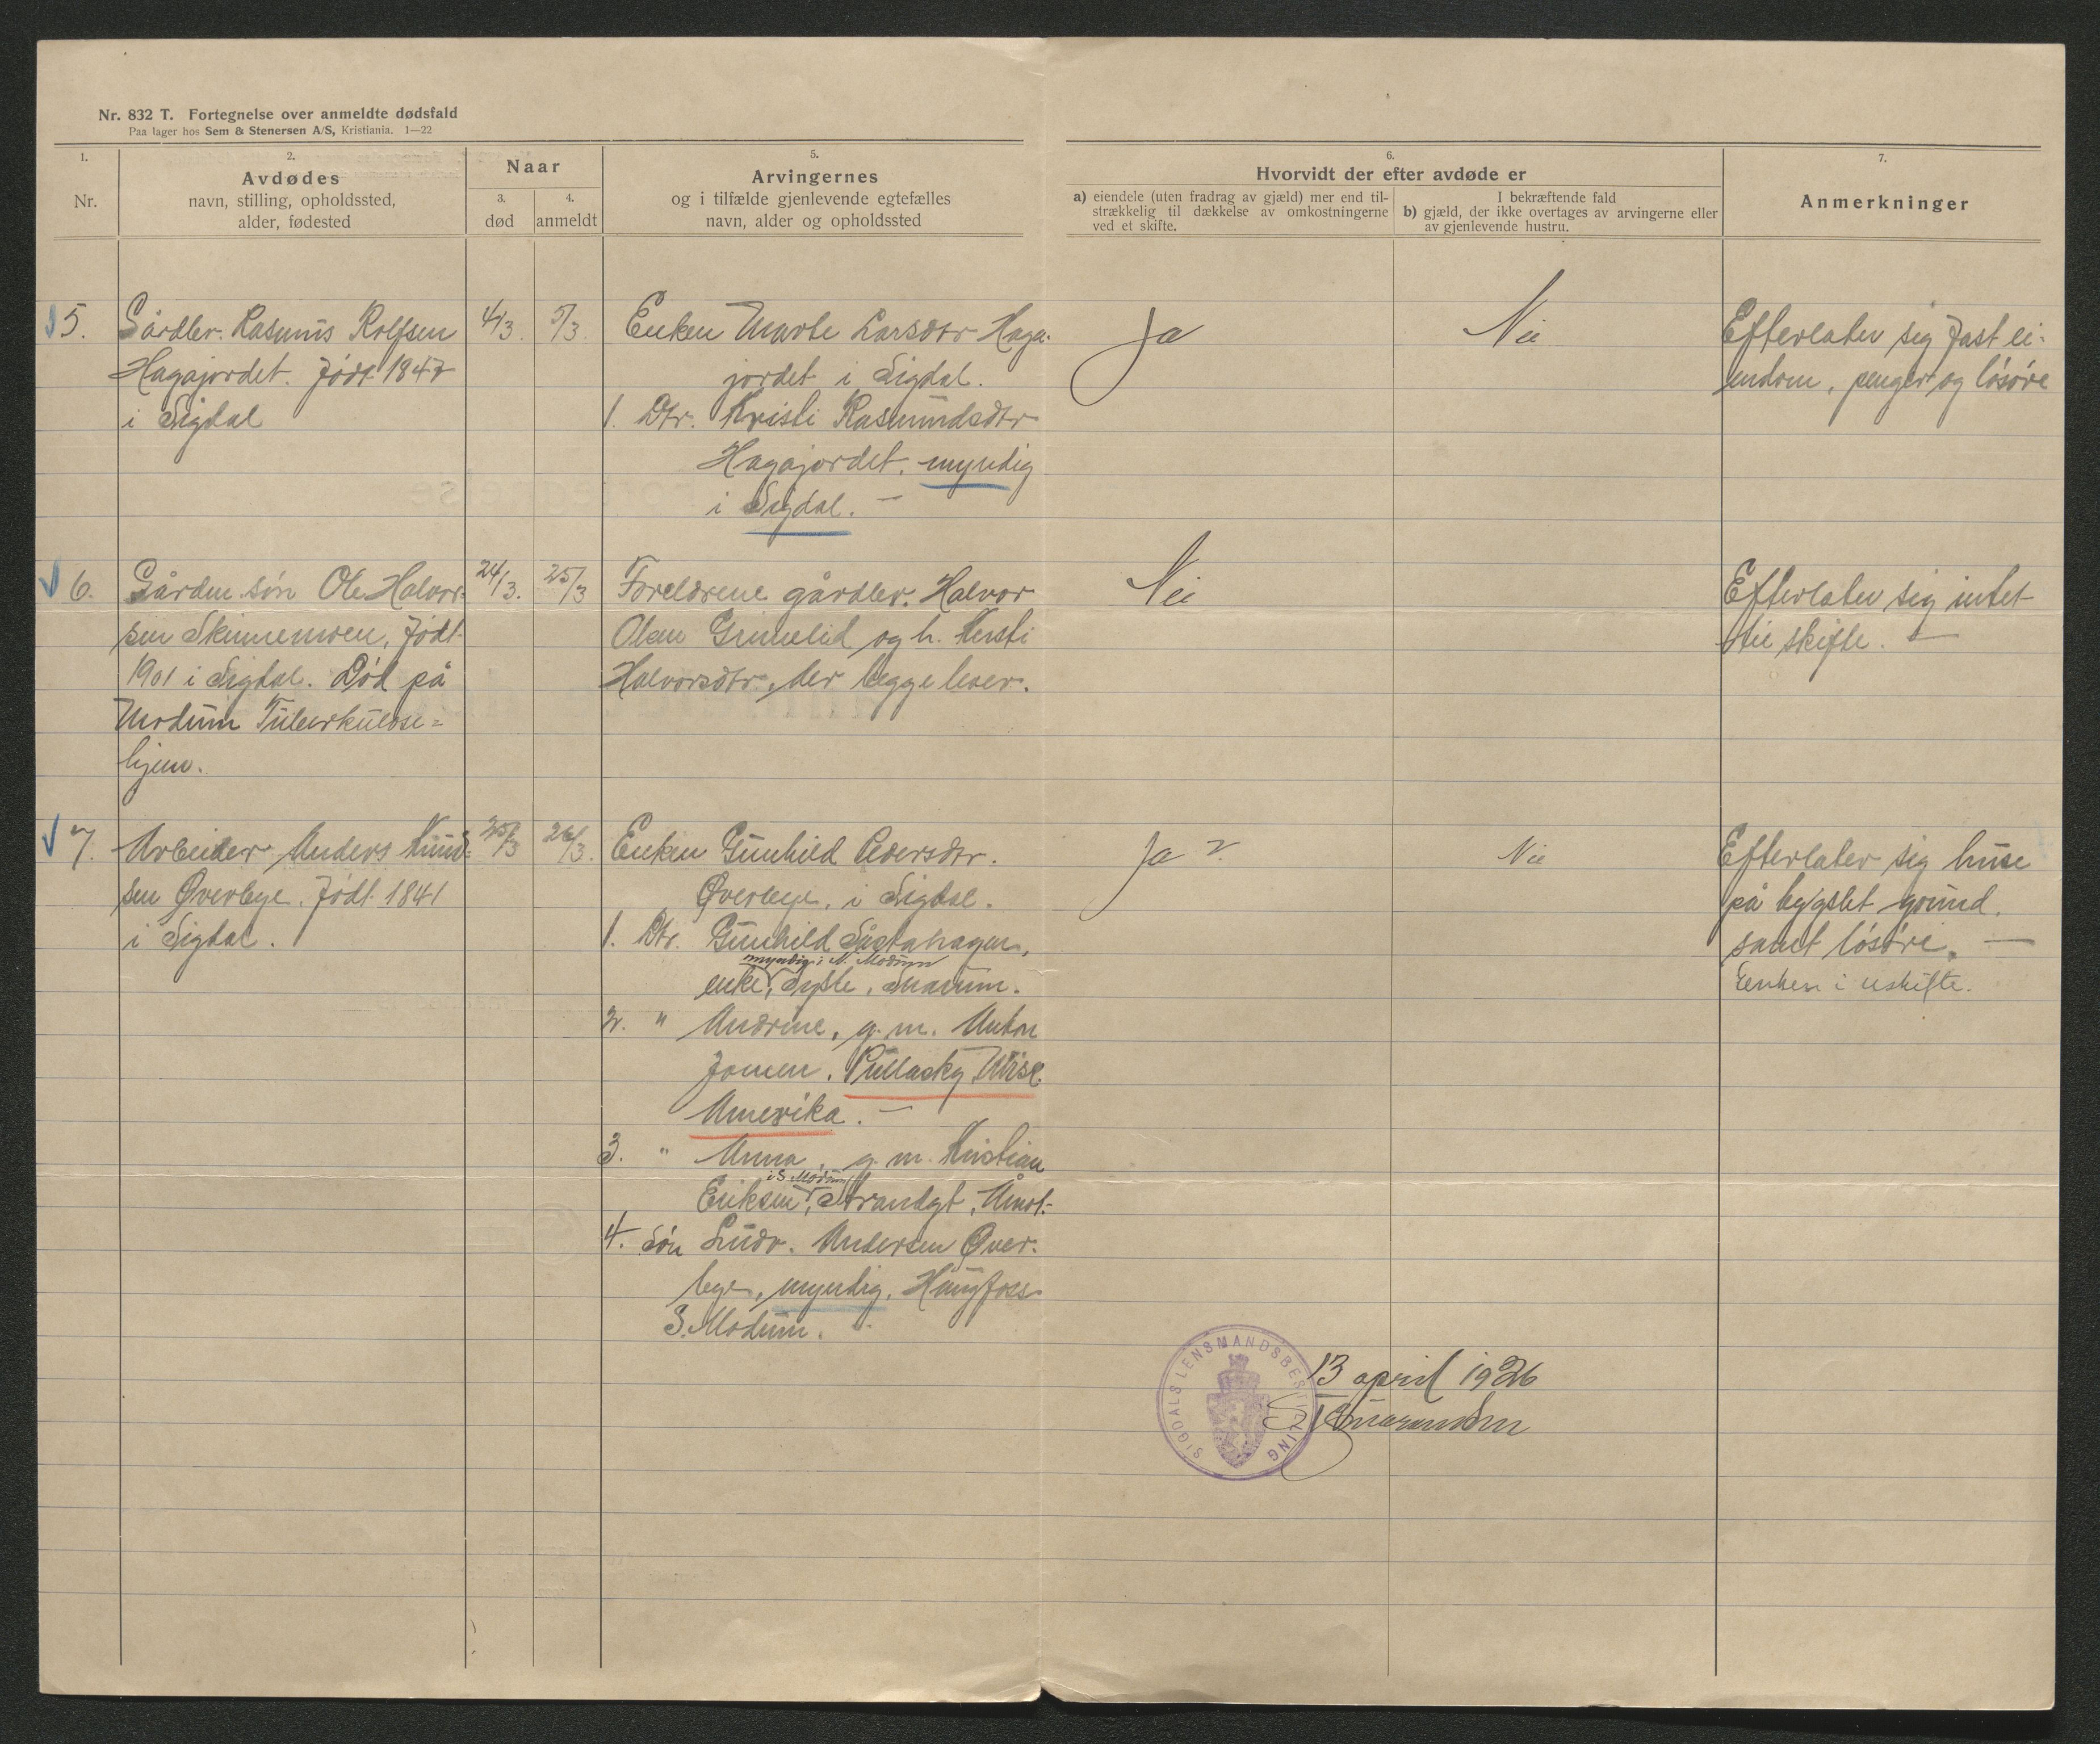 Nr. 832 T. Fortegnelse over anmeldte dødsfald
Paa lager hos Sem & Stenersen A/S, Kristiania. 1—22
1.
Nr.
2.
Avdødes
navn, stilling, opholdssted,
alder, fødested
Naar
3.
død
4.
anmeldt
5.
Arvingernes
og i tilfælde gjenlevende egtefælles
navn, alder og opholdssted
6.
Hvorvidt der efter avdøde er
a) eiendele (uten fradrag av gjæld) mer end til-
strækkelig til dækkelse av omkostningerne
ved et skifte.
I bekræftende fald
b) gjæld, der ikke overtages av arvingerne eller
av gjenlevende hustru.
7.
Anmerkninger
5.
Gårdbr. Rasmus Rolfsen
Hagajordet. Født 1847
i Sigdal
4/3.
5/3.
Enken Marte Larsdtr Haga-
jordet i Sigdal.
1. Dtr. Kristi Rasmundsdtr
Hagajordet, myndig
i Sigdal. —
Ja
Nei
Efterlater sig fast ei-
endom, penger og løsøre
6.
Gårdm. søn Ole Halvor-
sen Skinnemoen, født
1901 i Sigdal. Død på
Modum Tuberkulose-
hjem.
24/3.
25/3
Foreldrene gårdbr. Halvor
Olsen Grimelid og h. Kersti
Halvorsdtr, der begge lever.
Nei
Efterlater sig intet
til skifte. —
7.
Arbeider Anders Knud-
sen Øverbye. Født 1841
i Sigdal.
25/3
26/3.
Enken Gunhild Pedersdtr.
Øverbye, i Sigdal.
1. Dtr. Gunhild Såstahagen,
myndig i N. Modum
enke, Sysle, Snarum.
2. " Andrine, g. m. Anton
Jonsen, Pullasky, Wisc.
Amerika. —
3. " Anna, g. m. Kristian
i S. Modum
Eriksen, Strandgt, Åmot.
4. Søn Ludv. Andersen Øver-
bye, myndig, Haugfoss
S. Modum.
Ja
Nei
Efterlater sig huse
på bygslet grund,
samt løsøre. —
Enken i uskifte.
SIGDALS LENSMANDSBESTILLING
13 april 1926